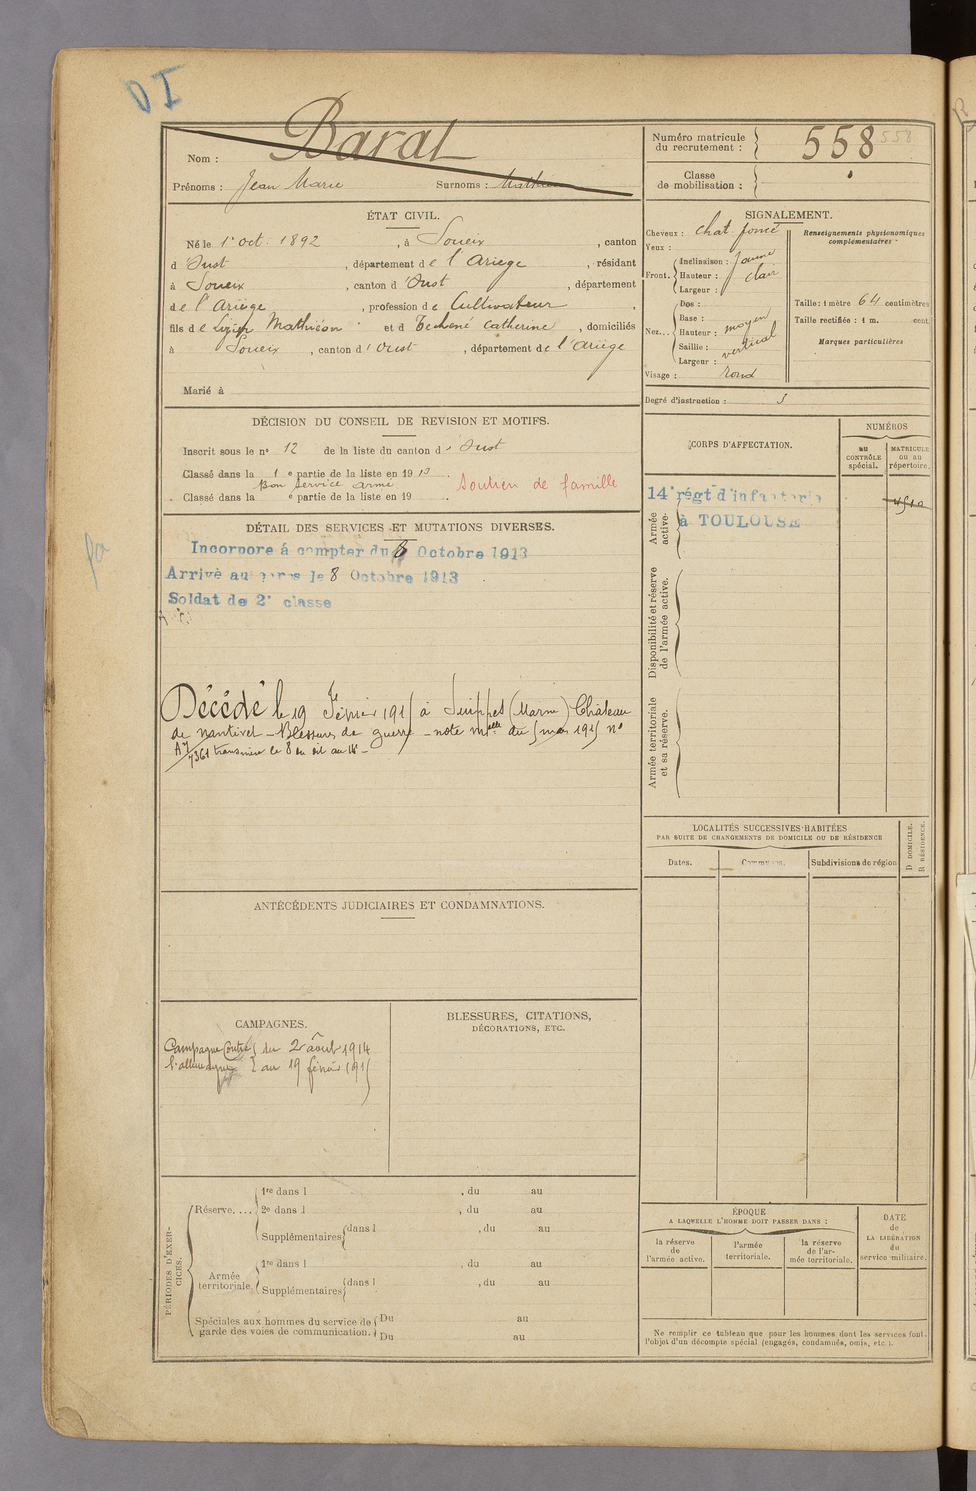 DI
Nom : Baral
Prénoms : Jean Marie Surnoms : Mathieu
Numéro matricule du recrutement : 558 558
Classe de mobilisation :
ÉTAT CIVIL.
Né le 1er oct. 1892, à Soueix, canton
d'Oust, département de l'Ariège, résidant
à Soueix, canton d'Oust, département
de l'Ariège, profession de Cultivateur
fils de Mathiéon et d Techené Catherine, domiciliés
à Soueix, canton d'Oust, département de l'Ariège
Marié à
SIGNALEMENT.
Cheveux : chat. foncé
Yeux : jaune clair
Front. Inclinaison :
Hauteur :
Largeur :
Nez... Dos :
Base :
Hauteur : moyen
Saillie : vertical
Largeur :
Visage : rond
Renseignements physionomiques complémentaires
Taille : 1 mètre 64 centimètres
Taille rectifiée : 1 m. cent.
Marques particulières
Degré d'instruction : 3
DÉCISION DU CONSEIL DE REVISION ET MOTIFS.
Inscrit sous le no 12 de la liste du canton d'Oust
Classé dans la 1 e partie de la liste en 1913.
Bon service armé
Soutien de famille
Classé dans la e partie de la liste en 19
DÉTAIL DES SERVICES ET MUTATIONS DIVERSES.
Incorporé à compter du 8 Octobre 1913
Arrivé au corps le 8 Octobre 1913
Soldat de 2e classe
Décédé le 19 Février 1915 à Suippes (Marne) Château
de Nantivet - Blessures de guerre - note melle du 5 mars 1915 no
AY 7361 transmise le 8 du dit au 14e -
CORPS D'AFFECTATION.
NUMÉROS
au CONTRÔLE spécial.
MATRICULE ou au répertoire.
Armée active.
14e régt d'infanterie
à TOULOUSE
Disponibilité et réserve de l'armée active.
Armée territoriale et sa réserve.
LOCALITÉS SUCCESSIVES HABITÉES
PAR SUITE DE CHANGEMENTS DE DOMICILE OU DE RÉSIDENCE
Dates.
Communes.
Subdivisions de région
D DOMICILE.
R RÉSIDENCE.
ANTÉCÉDENTS JUDICIAIRES ET CONDAMNATIONS.
CAMPAGNES.
Campagne contre du 2 août 1914
l'allemagne au 19 février 1915
BLESSURES, CITATIONS,
DÉCORATIONS, ETC.
PÉRIODES D'EXERCICES.
Réserve.... 1re dans l , du au
2e dans l , du au
Supplémentaires dans l , du au
Armée territoriale 1re dans l , du au
Supplémentaires dans l , du au
Spéciales aux hommes du service de Du au
garde des voies de communication. Du au
ÉPOQUE
A LAQUELLE L'HOMME DOIT PASSER DANS :
la réserve de l'armée active.
l'armée territoriale.
la réserve de l'armée territoriale.
DATE de LA LIBÉRATION du service militaire.
Ne remplir ce tableau que pour les hommes dont les services font
l'objet d'un décompte spécial (engagés, condamnés, omis, etc.).